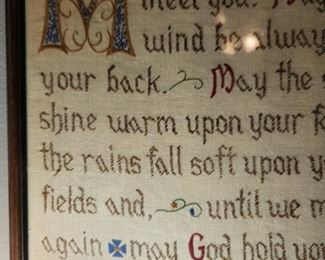 M meet you. May
wind be alway
your back. May the
shine warm upon your f
the rains fall soft upon y
fields and, until we m
again may God hold you